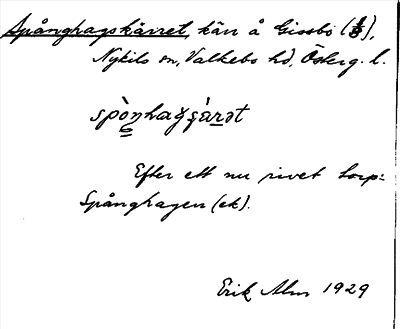 Spånghagskärret, kärr å Gissbo (1/3),
Nykils sn, Valkebo hd, Österg. l.
spòŋhaǥʂä̀rət
Efter ett nu rivet torp:
Spånghagen (ek).
Erik Alm 1929